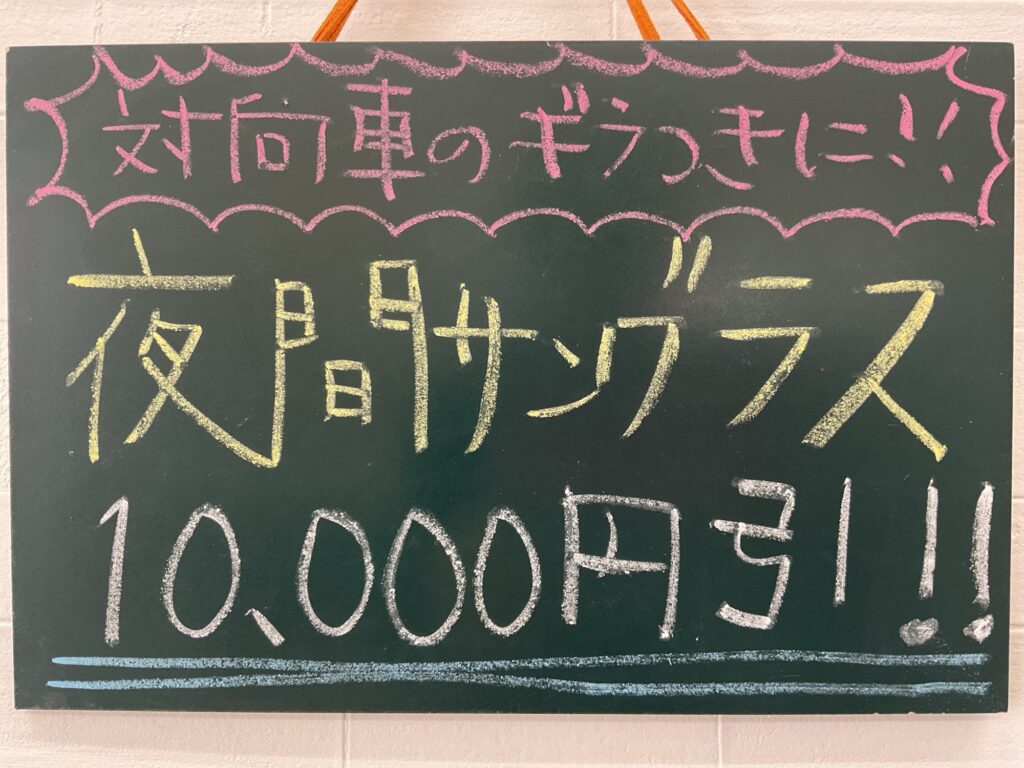 対向車のギラつきに!!
夜間サングラス
10,000円引!!